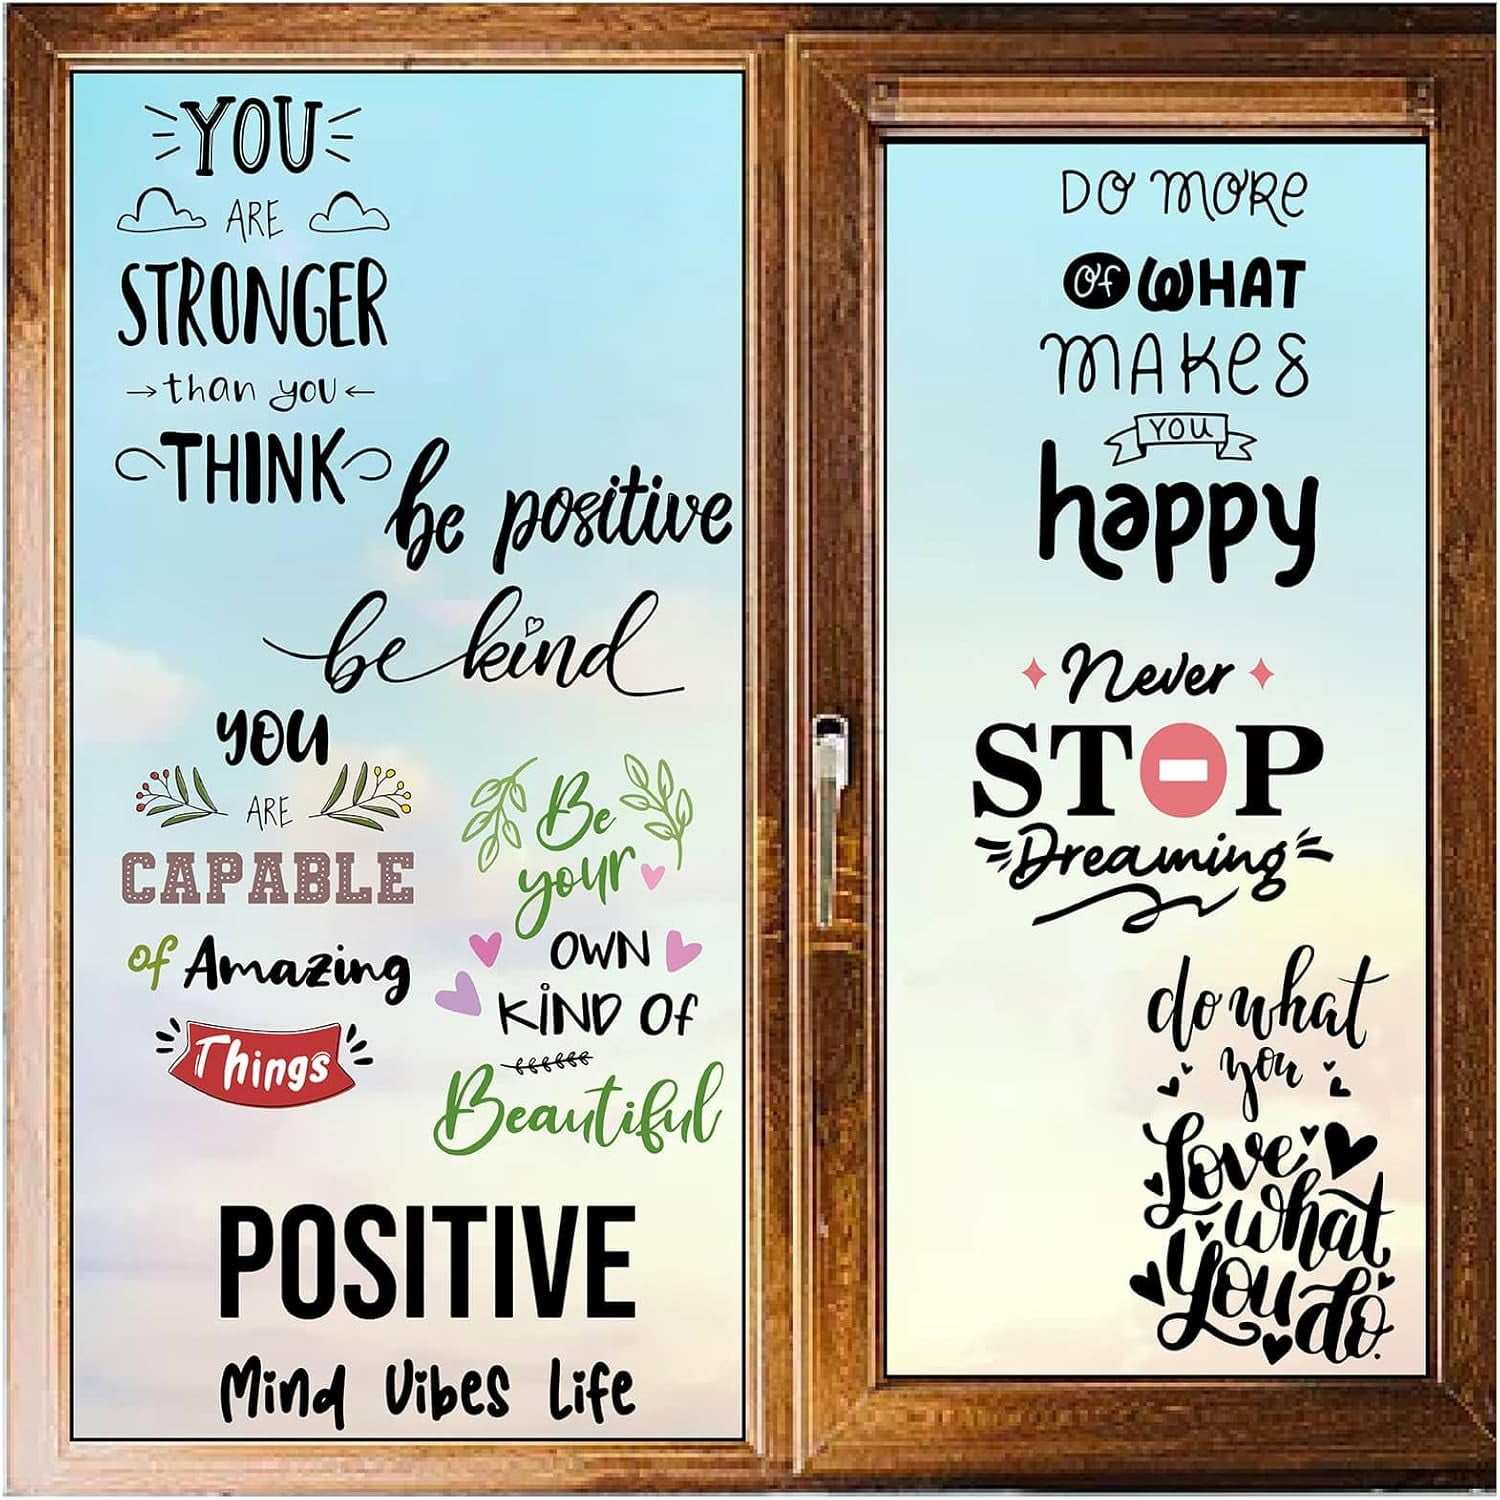 YOU
ARE
STRONGER
than you
THINK
be positive
be kind
you
ARE
CAPABLE
of Amazing
Things
Be
your
OWN
KIND OF
Beautiful
POSITIVE
Mind Vibes Life
DO MORE
Of WHAT
MAKES
YOU
happy
Never
STOP
Dreaming
do what
you
Love
what
You do.